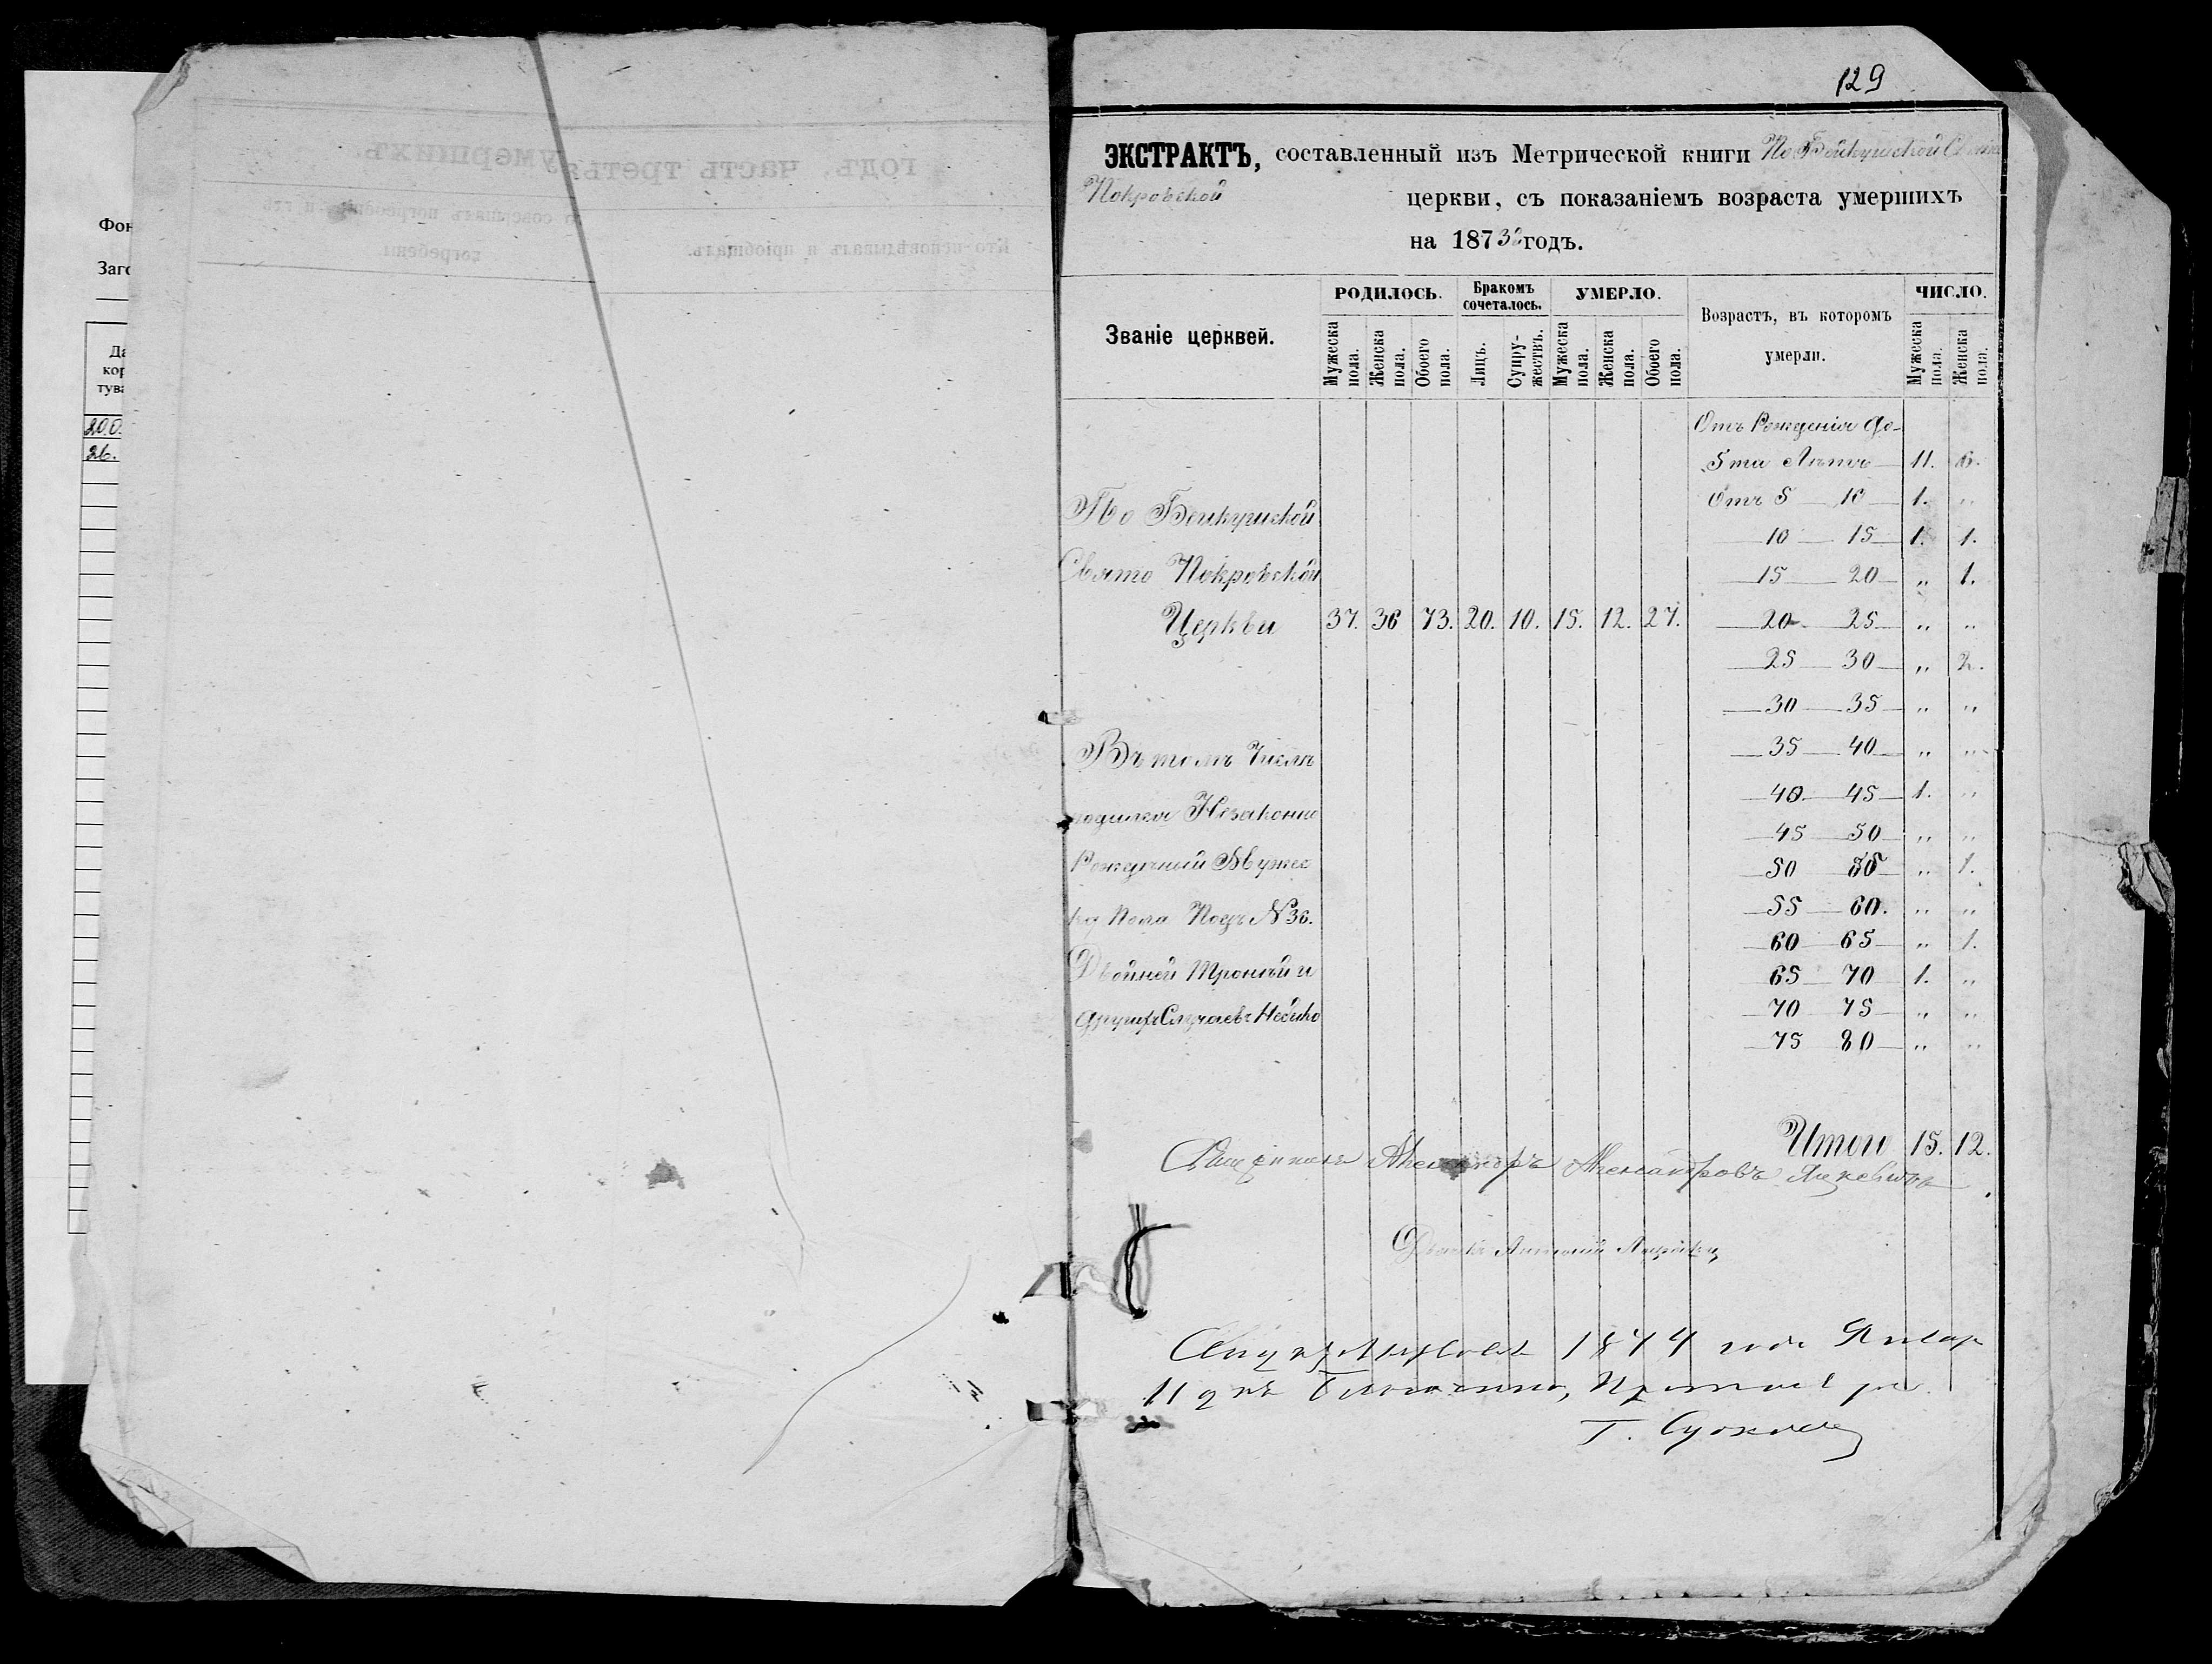 129
ЭКСТРАКТЪ, составленный изъ Метрической книги По Бейкушской Свято
Покровской церкви, съ показаніемъ возраста умершихъ
на 1873й годъ.
Званіе церквей.
РОДИЛОСЬ.
Мужеска пола.
Женска пола.
Обоего пола.
Бракомъ сочеталось.
Лицъ.
Супружествъ.
УМЕРЛО.
Мужеска пола.
Женска пола.
Обоего пола.
Возрастъ, въ которомъ
умерли.
ЧИСЛО.
Мужеска пола.
Женска пола.
По Бейкушской
Свято Покровской
Церкви 37. 36 73. 20. 10. 15. 12. 27.
Въ томъ Числѣ
Незаконно
Рожденный Мужес
ка Пола Подъ № 36.
Двойней Тройней и
другихъ Случаевъ Небыло
Отъ Рожденія до
5ти Лѣтъ 11. 6.
Отъ 5 — 10 — 1. „
— 10 — 15 — 1. 1.
— 15 — 20 — „ 1.
— 20 — 25 — „ „
— 25 — 30 — „ 2.
— 30 — 35 — „ „
— 35 — 40 — „ „
— 40 — 45 — 1. „
— 45 — 50 — „ „
— 50 — 55 — „ 1.
— 55 — 60. „ „
— 60 — 65 — „ 1.
— 65 — 70 — 1. „
— 70 — 75 — „ „
— 75 — 80 — „ „
Итого 15. 12.
Священникъ Александръ Александровъ
Дьякъ Антоній
1874 года Январ
11 дня
Фон
Заго
Да
кор
тува
20.0
26.
годъ, часть третья умершихъ.
Кто исповѣдывалъ и пріобщалъ.
Кто совершалъ погребеніе и гдѣ
погребены